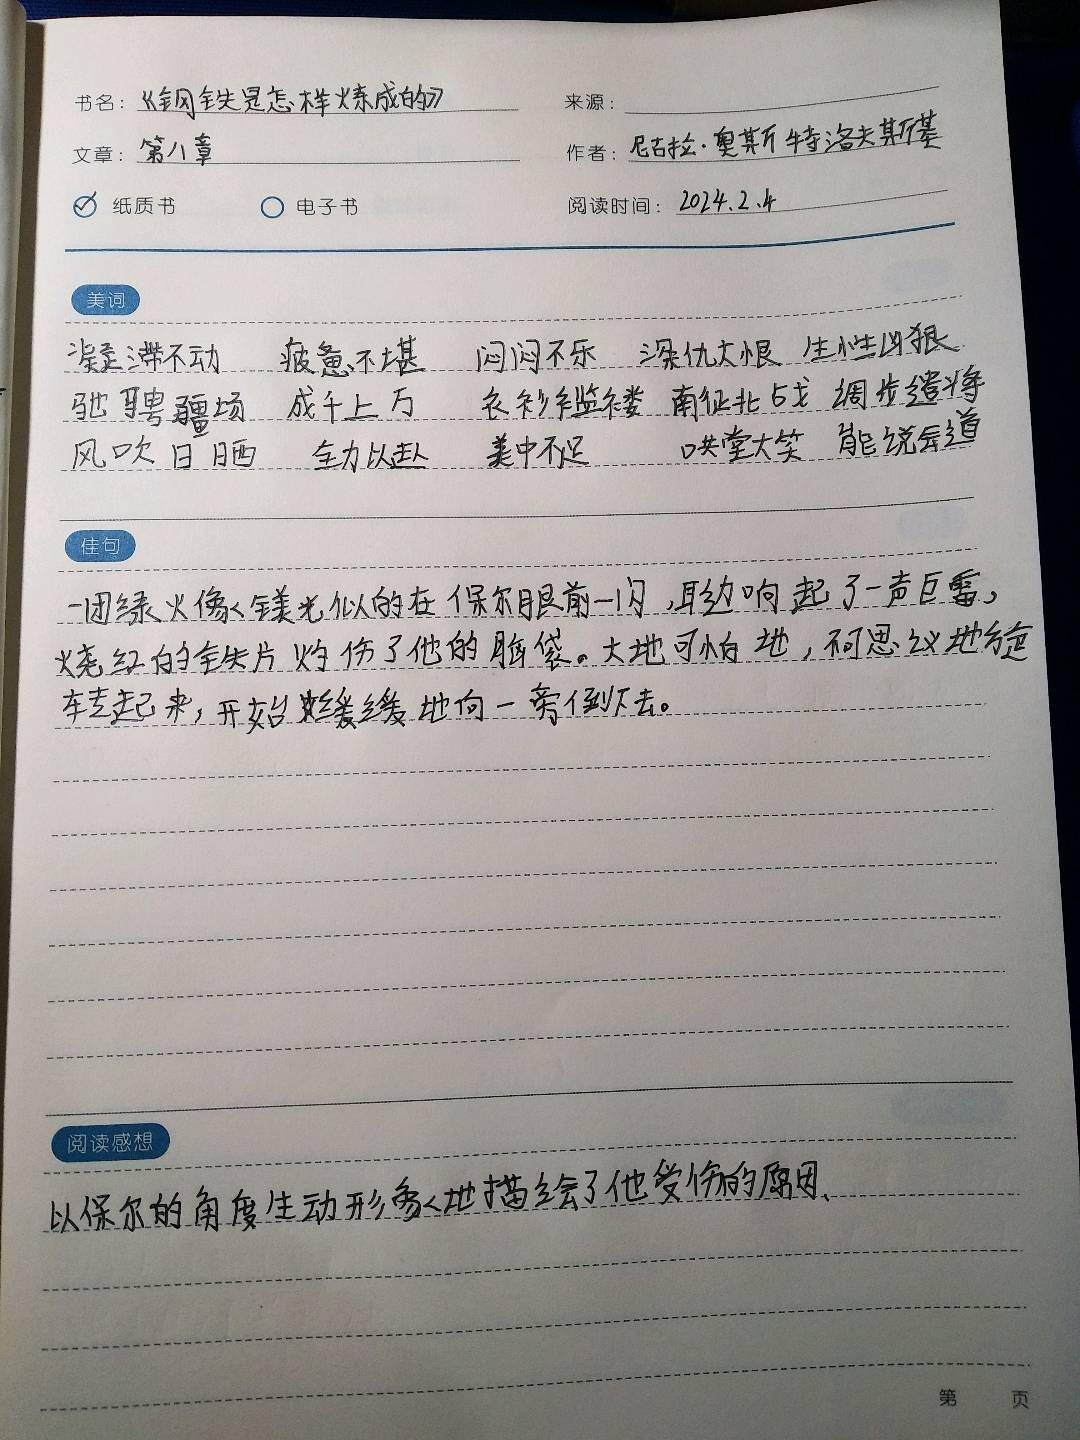 书名：《钢铁是怎样炼成的》 来源：
文章：第八章 作者：尼古拉·奥斯特洛夫斯基
纸质书 电子书 阅读时间：2024.2.4
美词
凝滞不动 疲惫不堪 闷闷不乐 深仇大恨 生性凶狠
驰骋疆场 成千上万 衣衫褴褛 南征北战 调兵遣将
风吹日晒 全力以赴 美中不足 哄堂大笑 能说会道
佳句
一团绿火像镁光似的在保尔眼前一闪，耳边响起了一声巨雷，
烧红的铁片灼伤了他的脑袋。大地可怕地，不可思议地旋
转起来，开始缓缓地向一旁倒下去。
阅读感想
以保尔的角度生动形象地描绘了他受伤的原因、
第 页